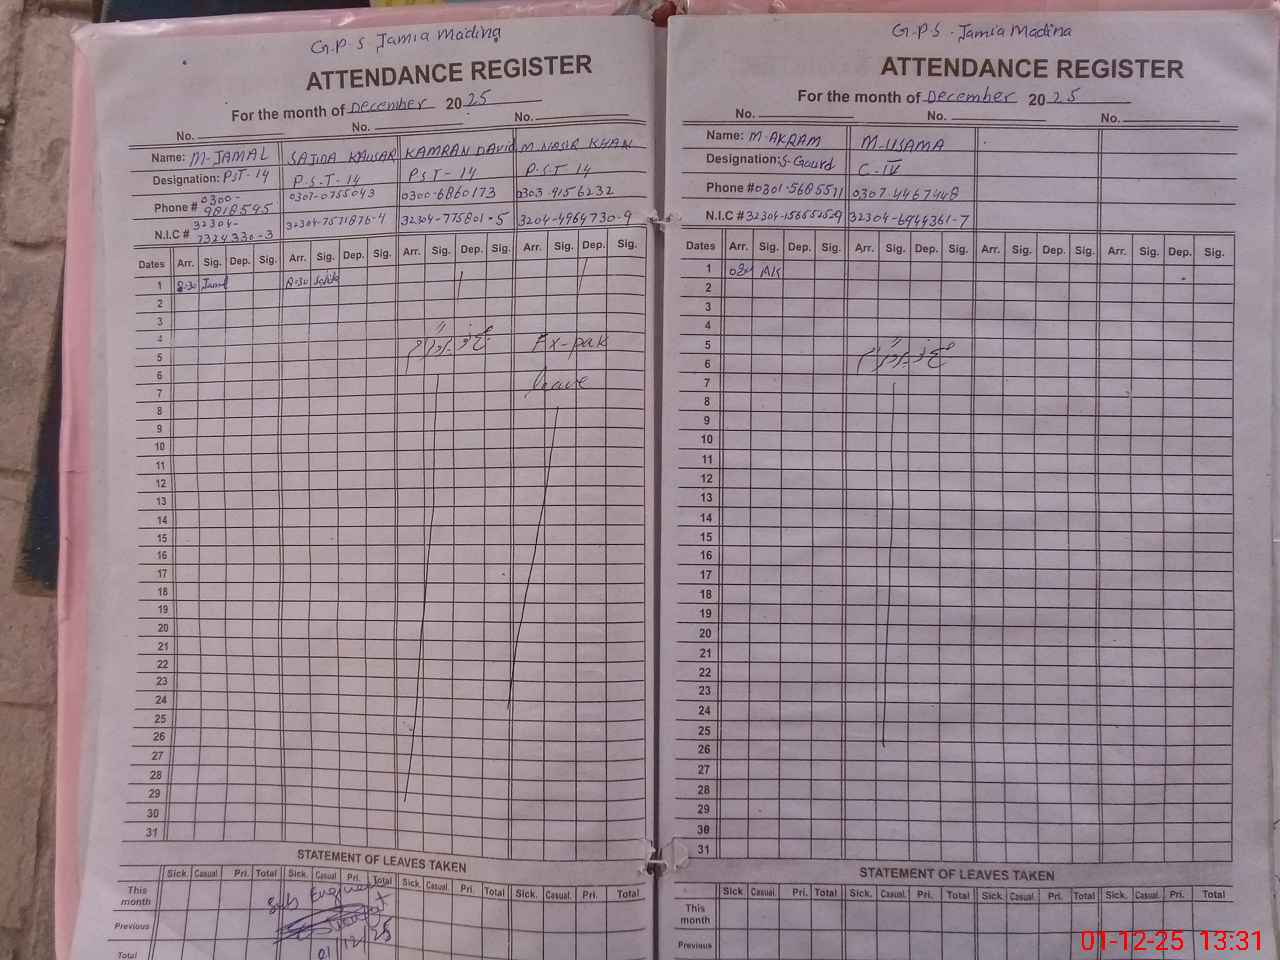 G.P.S Jamia Madina
ATTENDANCE REGISTER
For the month of December 2025
No. No. No.
Name: M-JAMAL SAJIDA KAUSAR KAMRAN DAVID M.NASIR KHAN
Designation: PST-14 P.S.T-14 PST-14 P.S.T 14
Phone # 0300-9818595 0301-0755043 0300-6860173 0303-9156232
N.I.C # 32304-7324330-3 32304-7571876-4 32304-775801-5 3204-4964730-9
Dates Arr. Sig. Dep. Sig. Arr. Sig. Dep. Sig. Arr. Sig. Dep. Sig. Arr. Sig. Dep. Sig.
1 8:30 Jamal 8:30
2
3
4 Ex-pak
5
6 leave
7
8
9
10
11
12
13
14
15
16
17
18
19
20
21
22
23
24
25
26
27
28
29
30
31
STATEMENT OF LEAVES TAKEN
Sick. Casual. Pri. Total Sick. Casual. Pri. Total Sick. Casual. Pri. Total Sick. Casual. Pri. Total
This month
Sub Engineer
Previous
01/12/25
Total
G.P.S. Jamia Madina
ATTENDANCE REGISTER
For the month of December 2025
No. No. No.
Name: M-AKRAM M-USAMA
Designation: S-Gaurd C-IV
Phone # 0301-5685511 0307-4467448
N.I.C # 32304-6944361-7
Dates Arr. Sig. Dep. Sig. Arr. Sig. Dep. Sig. Arr. Sig. Dep. Sig. Arr. Sig. Dep. Sig.
1 AK
2
3
4
5
6
7
8
9
10
11
12
13
14
15
16
17
18
19
20
21
22
23
24
25
26
27
28
29
30
31
STATEMENT OF LEAVES TAKEN
Sick Casual. Pri. Total Sick. Casual. Pri. Total Sick. Casual. Pri. Total Sick. Casual. Pri. Total
This month
Previous
01-12-25 13:31